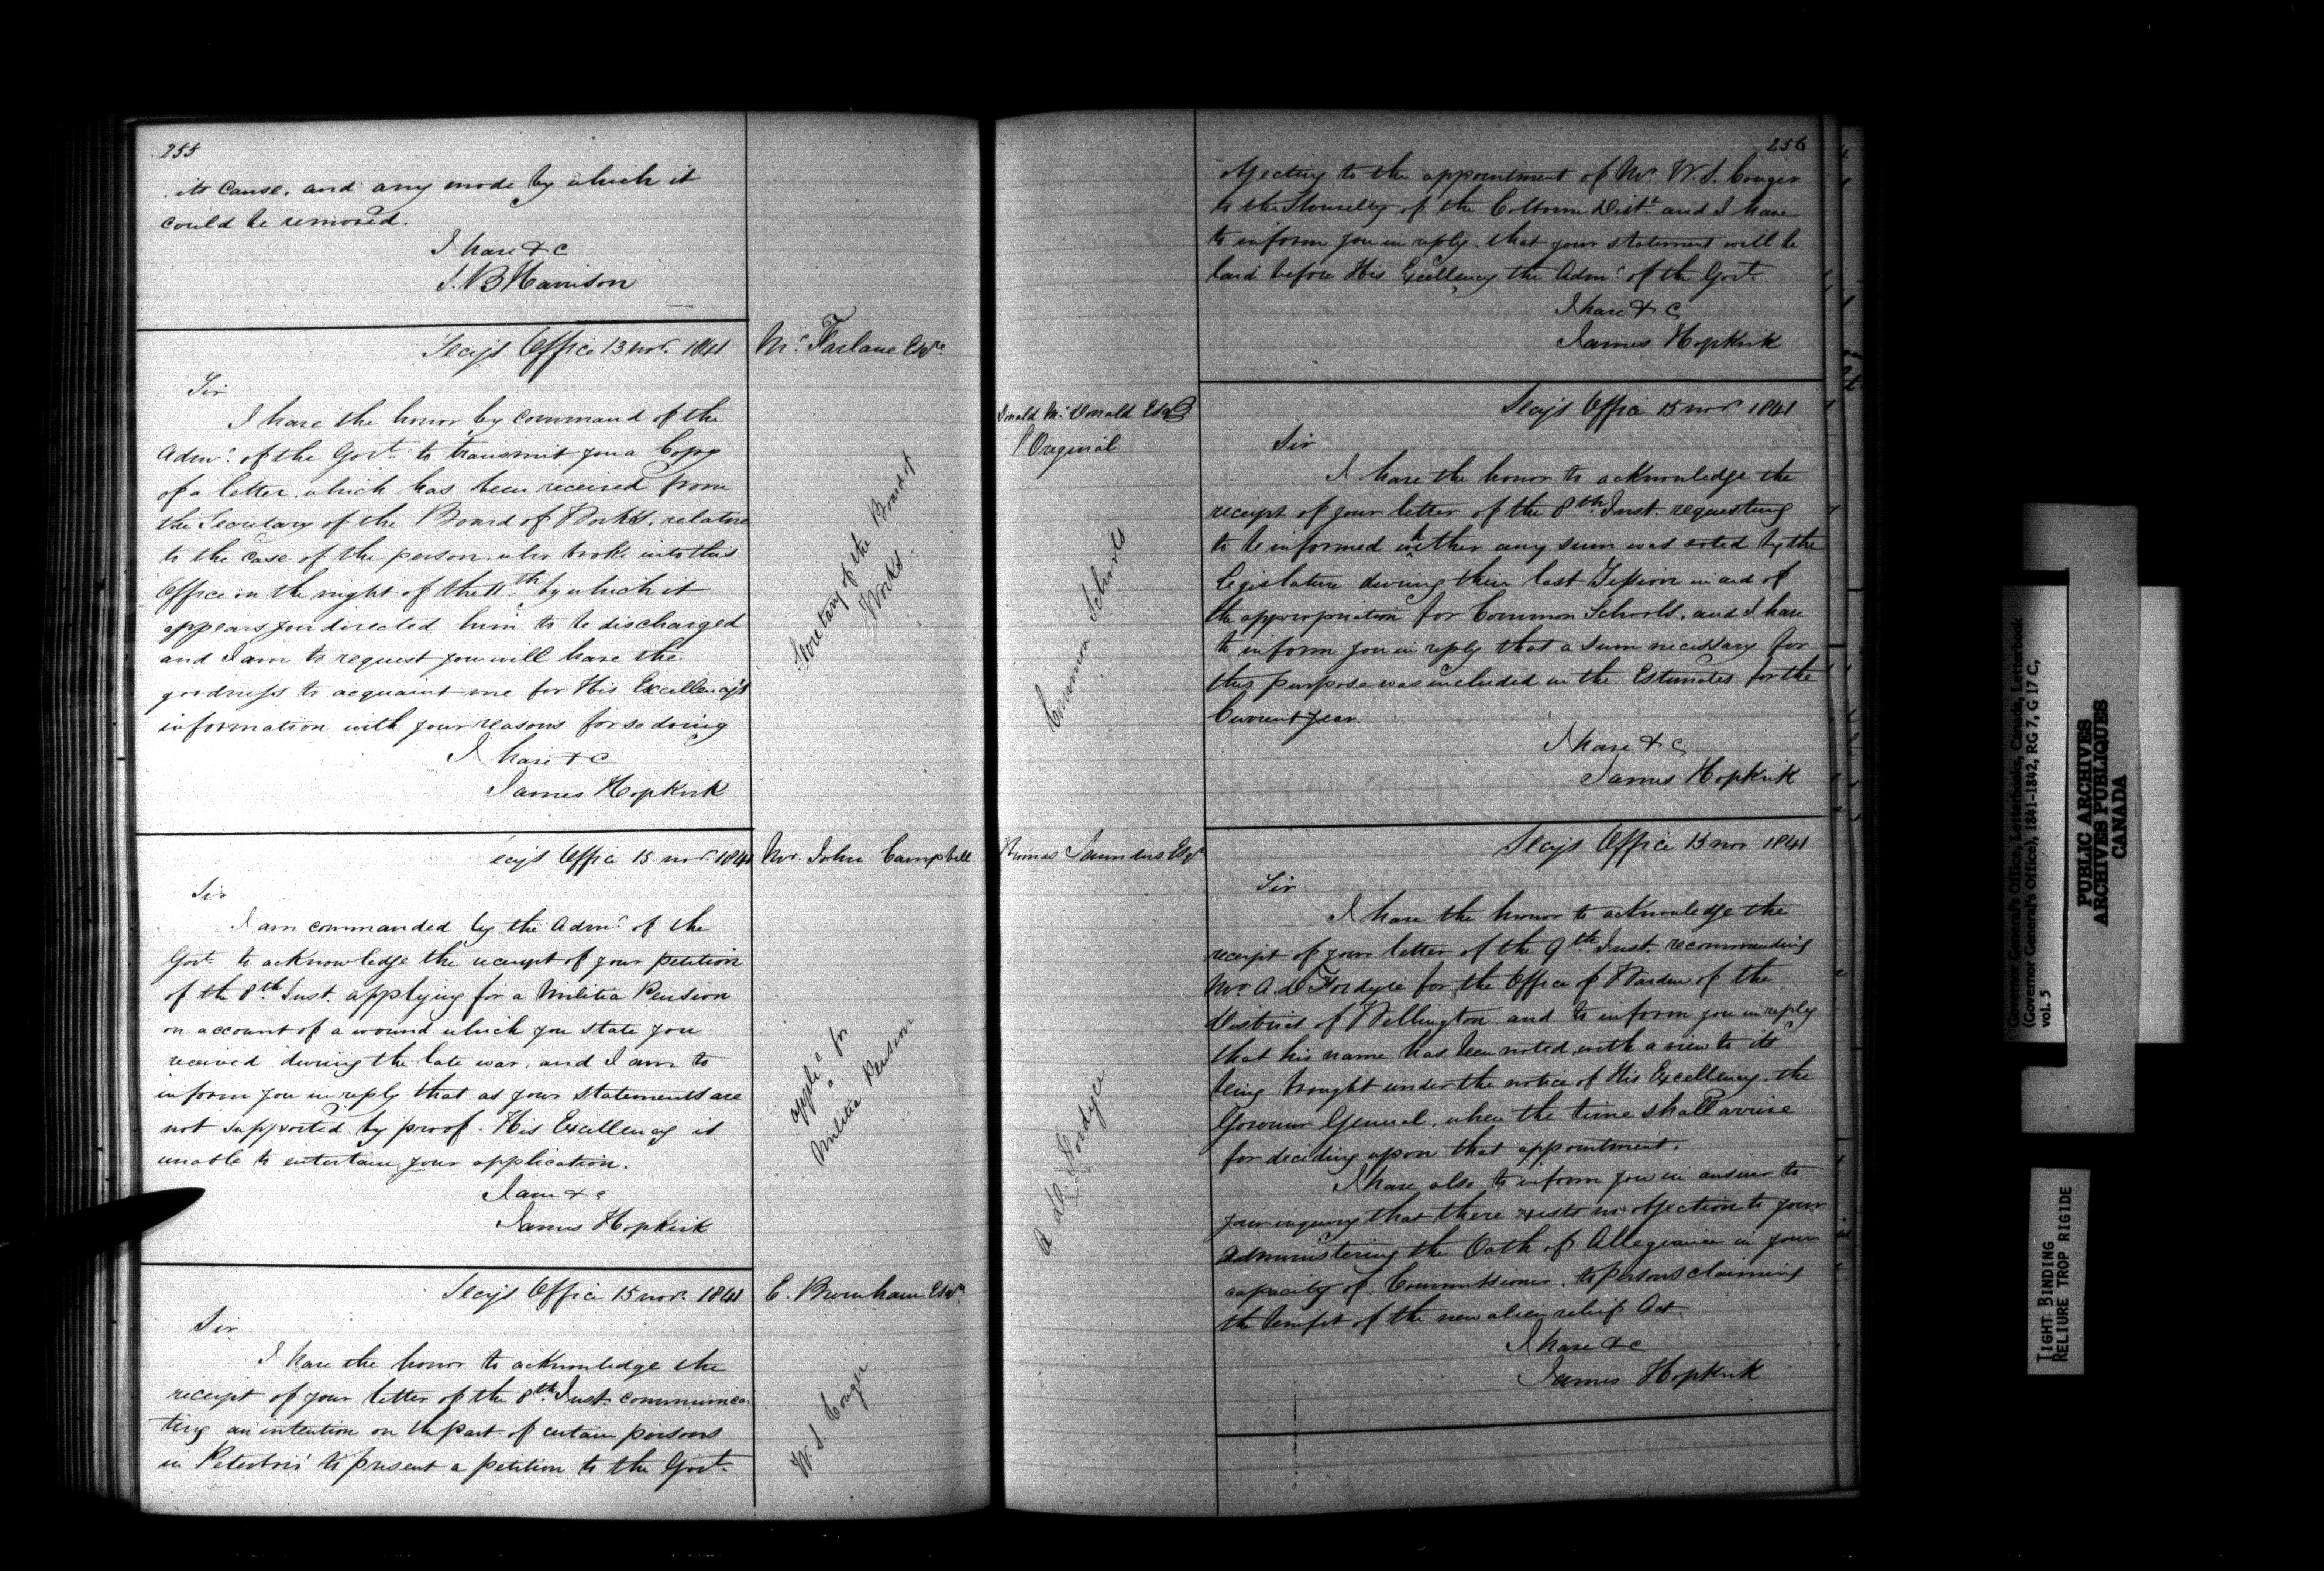 255
its cause, and any mode by which it
could be removed.
I have & c
S. B Harrison
Secys Office 13 novr. 1841
Mc. Farlane Esqre.
Sir
I have the honor by command of the
Admr. of the Govt. to transmit you a Copy
of a letter which has been received from
the Secretary of the Board of Works, relative
to the case of the person, who broke into this
Office on the night of the 11th by which it
appears you directed him to be discharged
and I am to request you will have the
goodness to acquaint me for His Excellency's
information with your reasons for so doing
I have & c
James Hopkirk
Secretary of the Board of
Works.
ecys Office 15 novr. 1841
Mr. John Campbell
Sir
I am commanded by the Admr. of the
Govt. to acknowledge the receipt of your petition
of the 8th. Inst. applying for a Militia Pension
on account of a wound which you state you
received during the late war, and I am to
inform you in reply that as your statements are
not supported by proof. His Excellency is
unable to entertain your application.
I am & c
James Hopkirk
applc. for
a
Militia Pension
Secys Office 15 novr. 1841
Sir
I have the honor to acknowledge the
receipt of your letter of the 8th. Inst. communica
ting an intention on the part of certain persons
in Peterboro' to present a petition to the Govt.
W. S. Conger
256
objecting to the appointment of Mr. W. S. Conger
to the of the Colborne Distt. and I have
to inform you in reply that your statement will be
laid before His Excellency the Admr. of the Govt.
I have & c
James Hopkirk
Donald Mc. Donald Esqr
Original
Secys Office 15 novr 1841
Sir
I have the honor to acknowledge the
receipt of your letter of the 8th. Inst. requesting
to be informed whether any sum was voted by the
Legislature during their last Session in aid of
the appropriation for Common Schools, and I have
to inform you in reply that a sum necessary for
this purpose was included in the Estimates for the
Current year.
I have & c
James Hopkirk
Common Schools
Thomas Saunders Esqr
Secys Office 15 nov 1841
Sir
I have the honor to acknowledge the
receipt of your letter of the 9th Inst. recommending
Mr. A. D Fordyce for the Office of Warden of the
District of Wellington and to inform you in reply
that his name has been noted, with a view to its
being brought under the notice of His Excellency the
Governor General, when the time shall arrive
for deciding upon that appointment.
I have also to inform you in answer to
your inquiry that there exists no objection to your
administering the Oath of Allegiance in your
capacity of Commissioner, to persons claiming
the benefit of the new alien relief Act
I have & c
James Hopkirk
A. D. Fordyce
Governor General's Office, Letterbooks, Canada, Letterbook
(Governor General's Office), 1841-1842, RG 7, G 17 C,
vol. 5
PUBLIC ARCHIVES
ARCHIVES PUBLIQUES
CANADA
TIGHT BINDING
RELIURE TROP RIGIDE